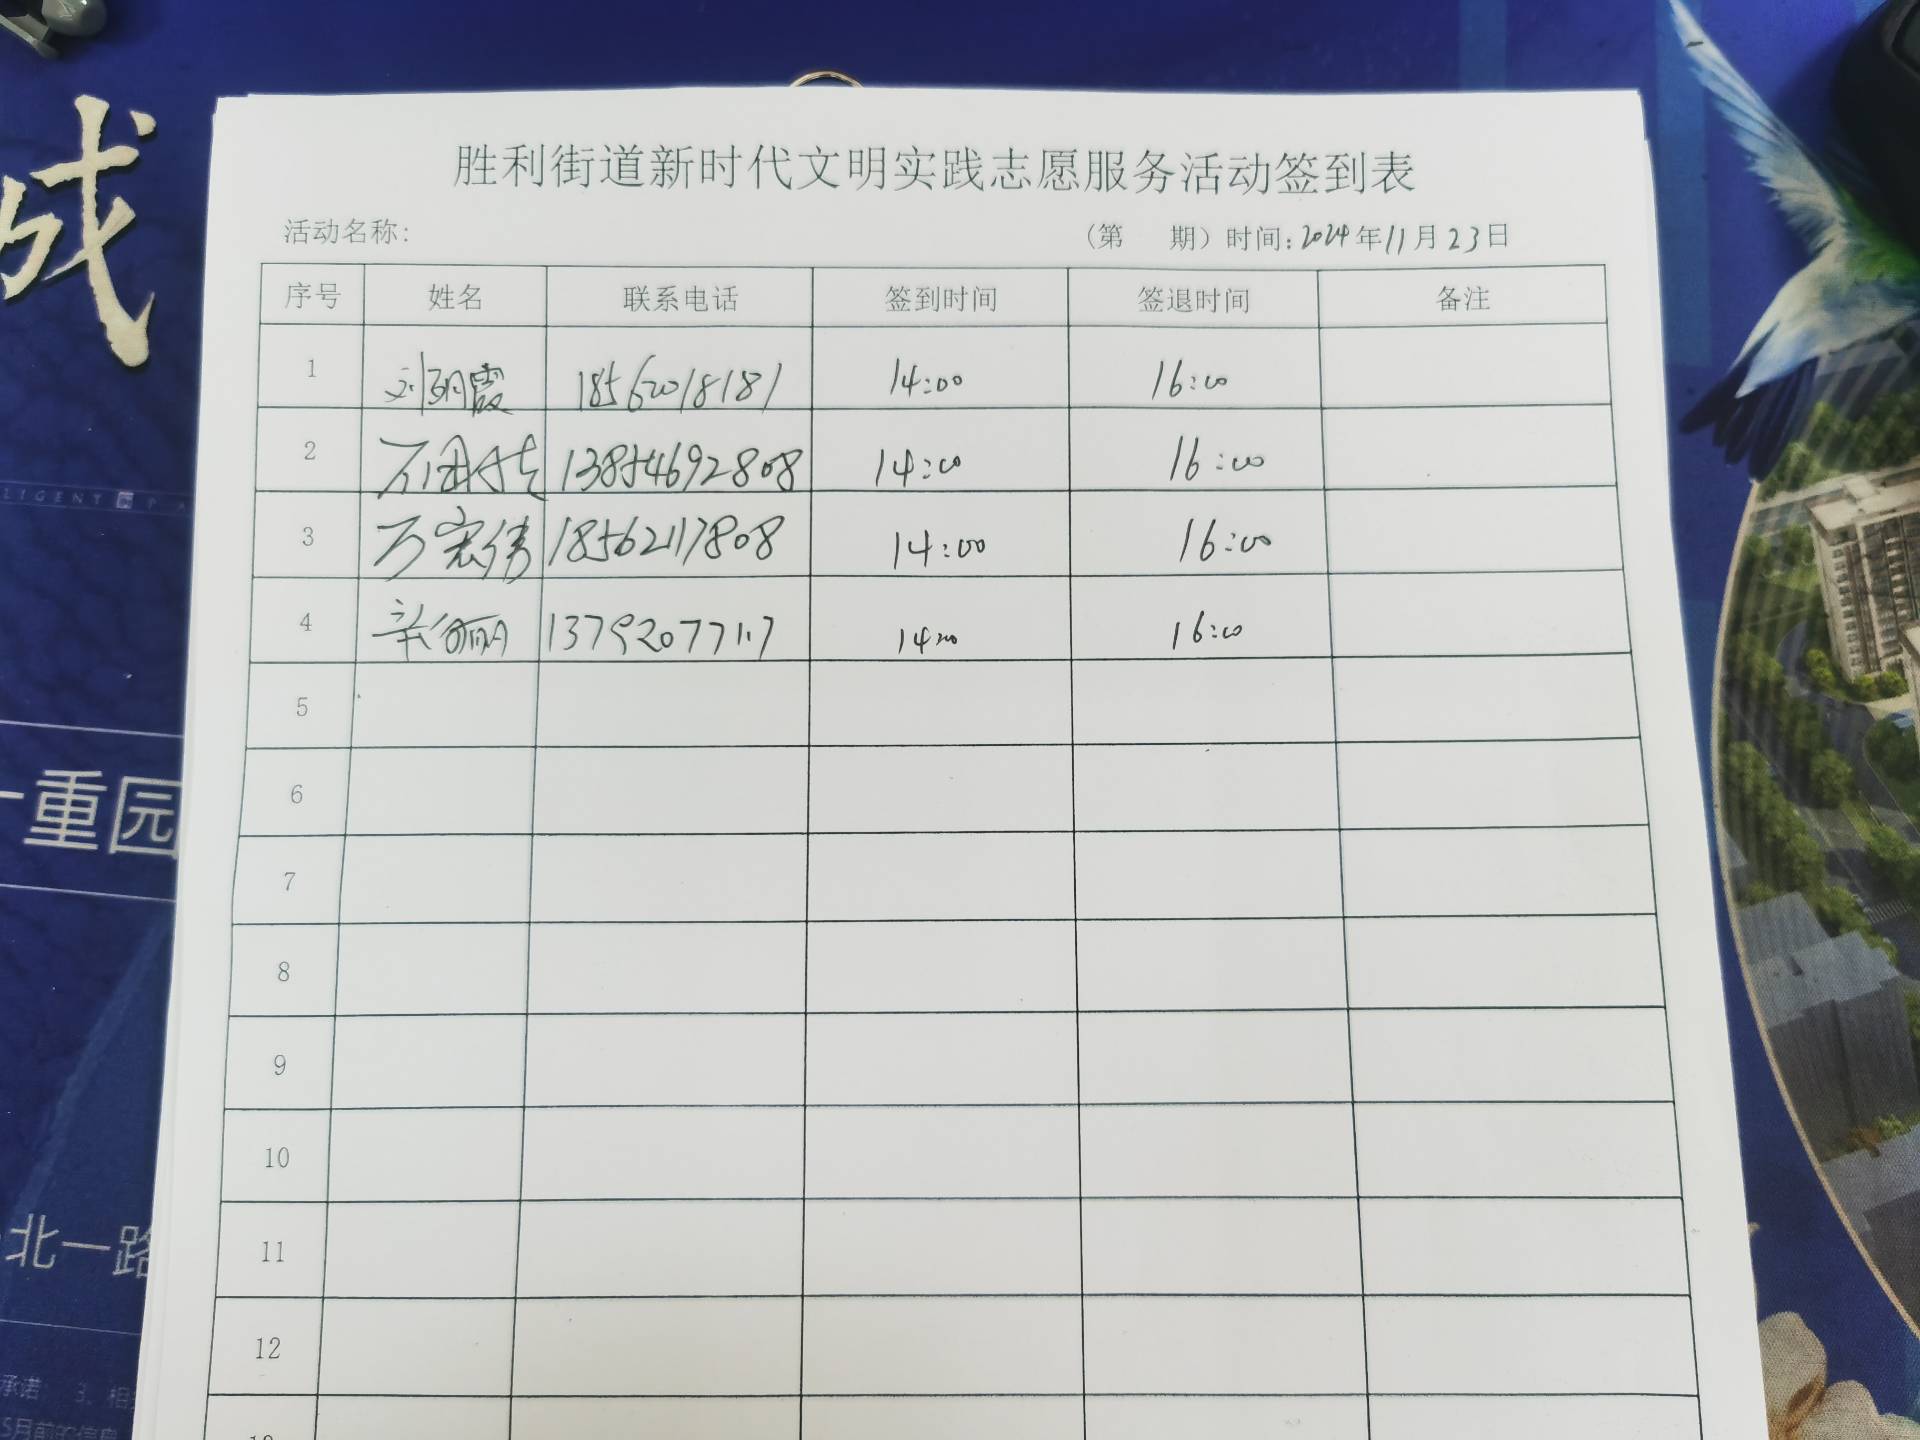 胜利街道新时代文明实践志愿服务活动签到表
活动名称: （第 期）时间:2024年11月23日
序号 姓名 联系电话 签到时间 签退时间 备注
1 刘明霞 18562018181 14:00 16:00
2 13854692808 14:00 16:00
3 万宏伟 18562117808 14:00 16:00
4 13792077117 14:00 16:00
5
6
7
8
9
10
11
12
成
LIGENT
一重园
北一路
承诺 3、相
5月前的信息